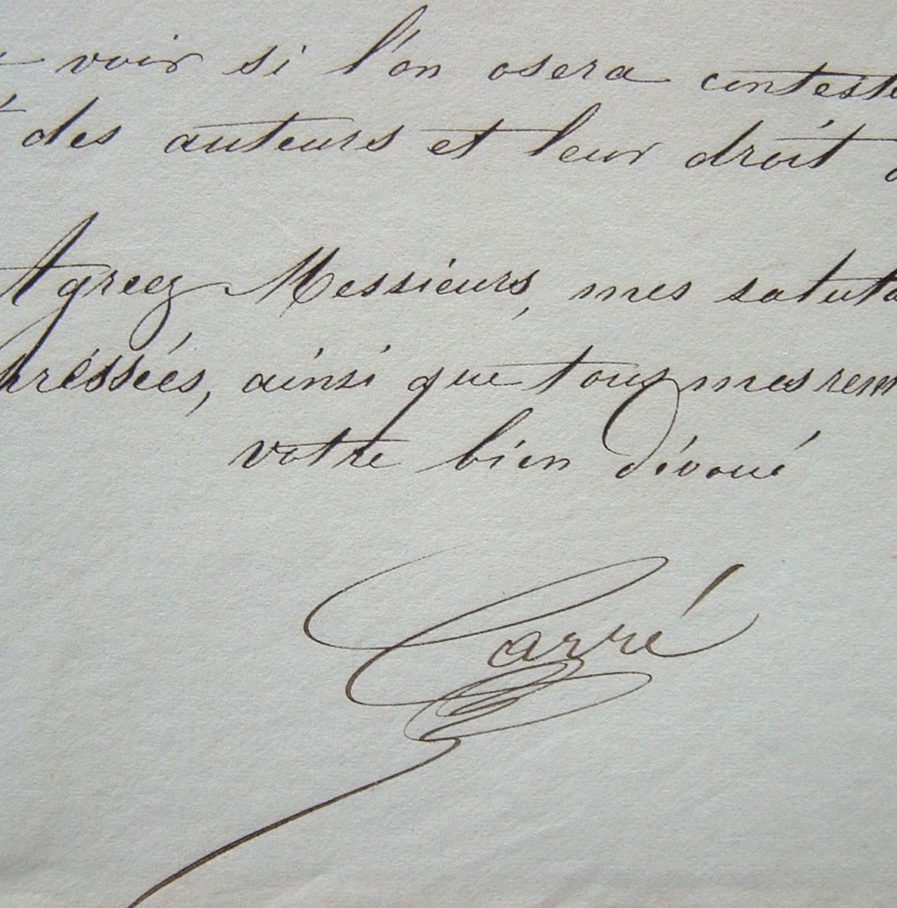 voir si l'on osera conteste
des auteurs et leur droit d
Agreez Messieurs, mes saluta
pressées, ainsi que tous mes rem
votre bien dévoué
Carré